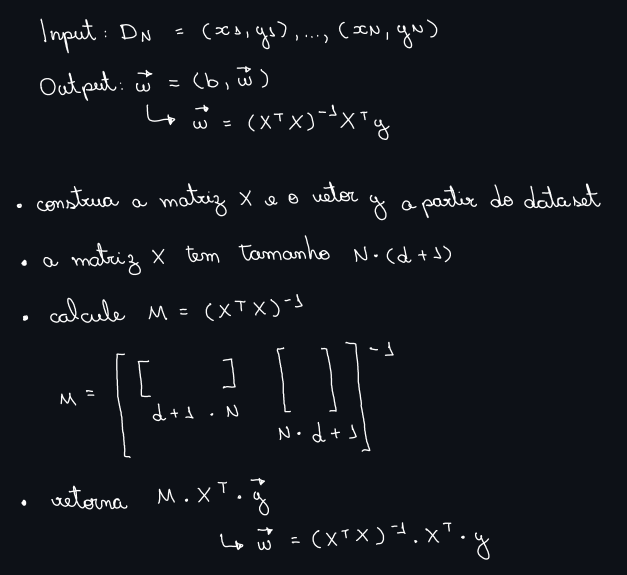 Input: D_N = (x1, y1), ..., (xN, yN)
Output: w⃗ = (b, w⃗)
↳ w⃗ = (XᵀX)⁻¹Xᵀy
• construa a matriz X e o vetor y a partir do dataset
• a matriz X tem tamanho N·(d+1)
• calcule M = (XᵀX)⁻¹
M = [[ ] [ ]]⁻¹
d+1 · N
N · d+1
• retorna M · Xᵀ · y⃗
↳ w⃗ = (XᵀX)⁻¹ · Xᵀ · y